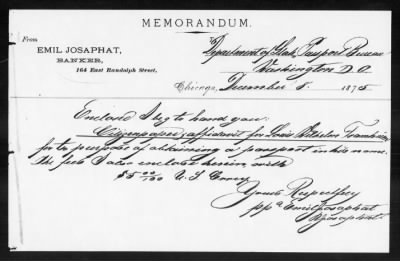 MEMORANDUM.
From
To
EMIL JOSAPHAT,
BANKER,
164 East Randolph Street,
Department of State, Passport Bureau
Washington D.C.
Chicago, December 5. 1875
Enclosed I beg to hand you:
Citizenpaper, affidavit for Louis Wilhelm
for the purpose of obtaining a passport in his name.
The fee I also enclose herein with
$5 00/100 U.S. Curcy
Yours Respectfuy
pp a Emil Josaphat
Josaphat.